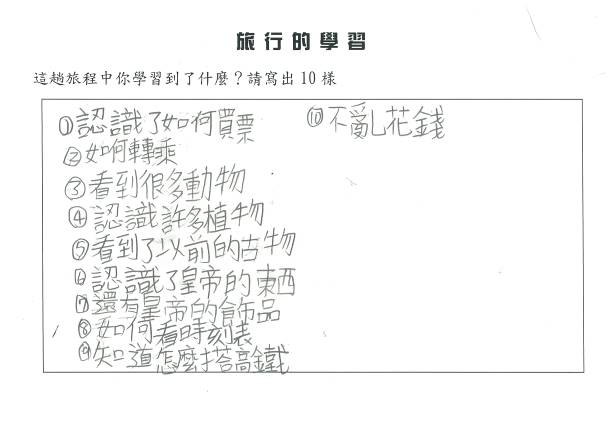 旅行的學習
這趟旅程中你學習到了什麼？請寫出10樣
①認識了如何買票
②如何轉乘
③看到很多動物
④認識許多植物
⑤看到了以前的古物
⑥認識了皇帝的東西
⑦還有皇帝的飾品
⑧如何看時刻表
⑨知道怎麼搭高鐵
⑩不亂花錢